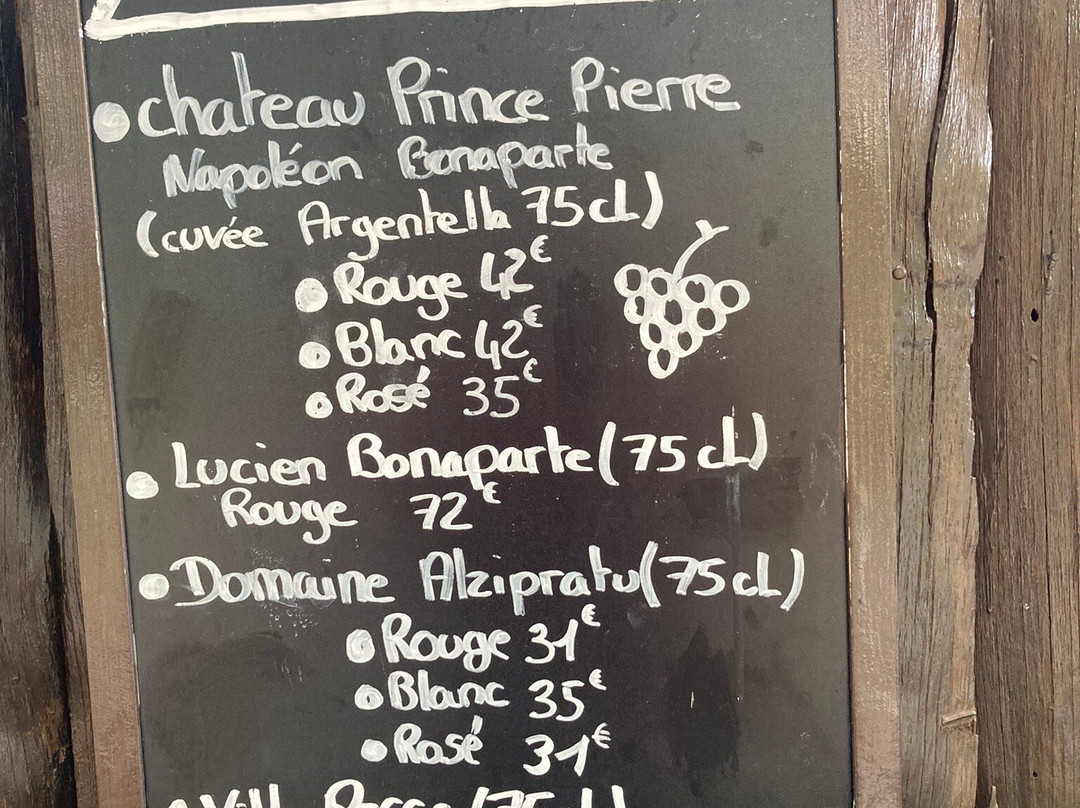 • Chateau Prince Pierre
Napoléon Bonaparte
(cuvée Argentella 75cL)
• Rouge 42€
• Blanc 42€
• Rosé 35€
• Lucien Bonaparte (75 cL)
Rouge 72€
• Domaine Alzipratu (75cL)
• Rouge 31€
• Blanc 35€
• Rosé 31€